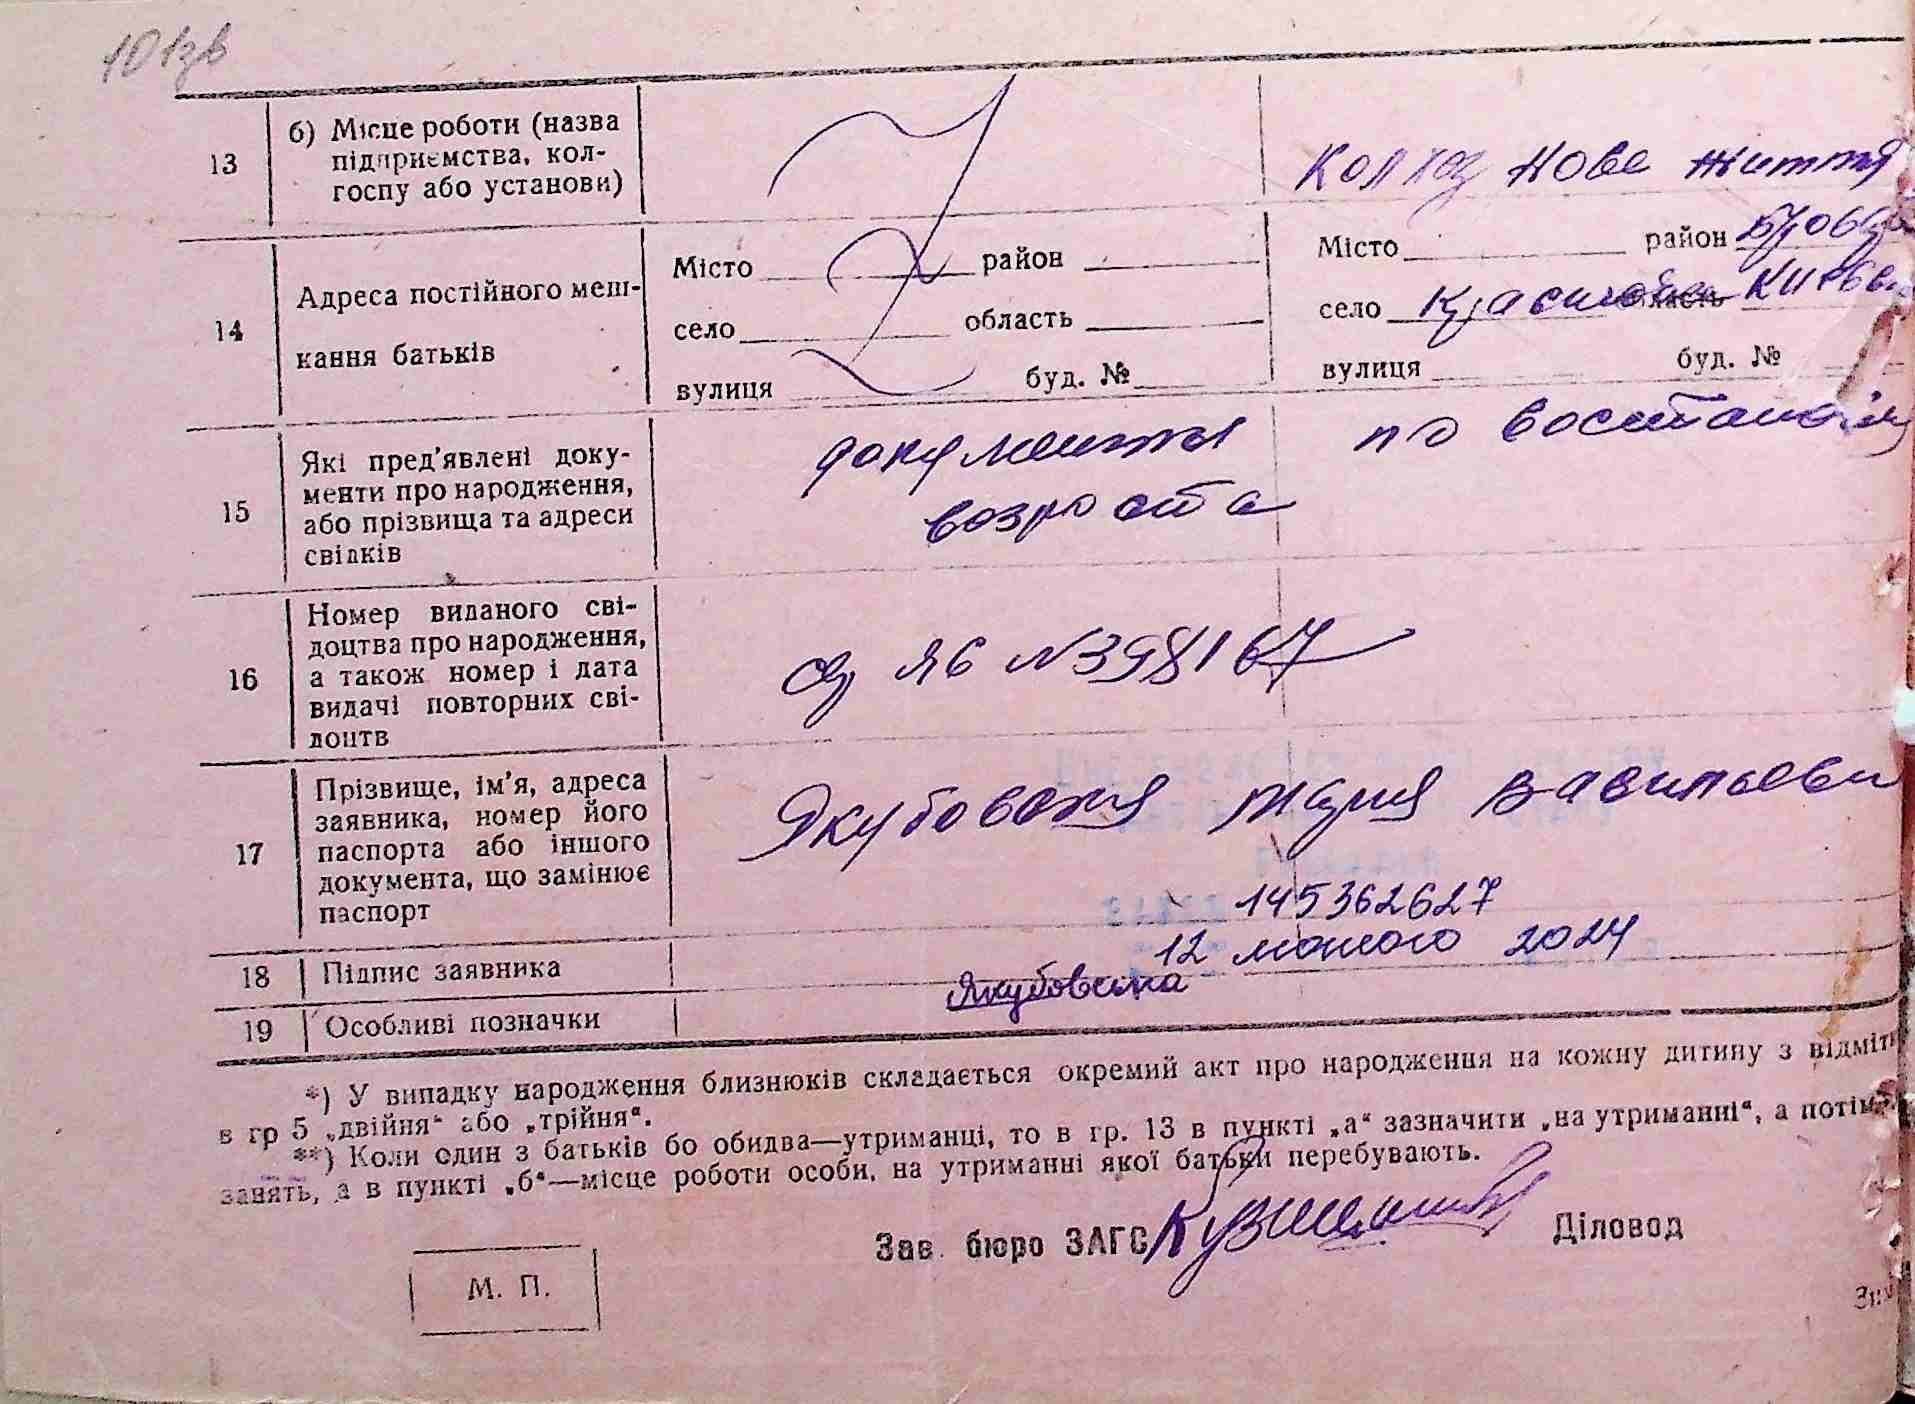 101зв
13
б) Місце роботи (назва
підприємства, кол-
госпу або установи)
Колхоз Нове життя
14
Адреса постійного меш-
кання батьків
Місто район
село область
вулиця буд. №
Місто район
село область
вулиця буд. №
15
Які пред'явлені доку-
менти про народження,
або прізвища та адреси
свідків
документы по
возроста
16
Номер виданого сві-
доцтва про народження,
а також номер і дата
видачі повторних сві-
доцтв
ЯБ №398167
17
Прізвище, ім'я, адреса
заявника, номер його
паспорта або іншого
документа, що замінює
паспорт
Якубовская Мария Васильевн
145362627
12 лютого 2024
18
Підпис заявника
Якубовська
19
Особливі позначки
*) У випадку народження близнюків складається окремий акт про народження на кожну дитину з відміт
в гр 5 „двійня“ або „трійня“.
**) Коли один з батьків бо обидва—утриманці, то в гр. 13 в пункті „а“ зазначити „на утриманні“, а потім
занять, а в пункті „б“—місце роботи особи, на утриманні якої батьки перебувають.
Зав. бюро ЗАГС Діловод
М. П.